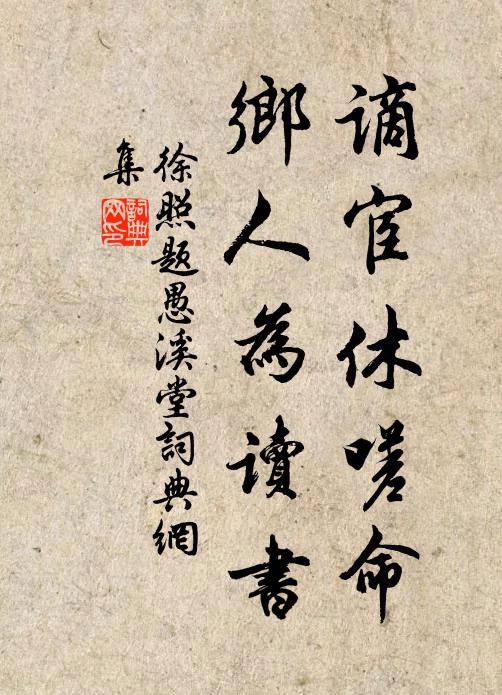 謫宦休嗟命
鄉人為讀書
徐照題愚溪堂詞典網
集
詞典
网印